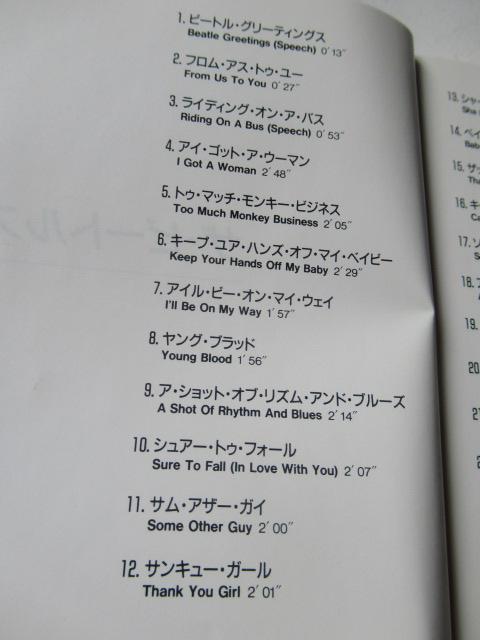 1. ビートル・グリーティングス
Beatle Greetings (Speech) 0′13″
2. フロム・アス・トゥ・ユー
From Us To You 0′27″
3. ライディング・オン・ア・バス
Riding On A Bus (Speech) 0′53″
4. アイ・ゴット・ア・ウーマン
I Got A Woman 2′48″
5. トゥ・マッチ・モンキー・ビジネス
Too Much Monkey Business 2′05″
6. キープ・ユア・ハンズ・オフ・マイ・ベイビー
Keep Your Hands Off My Baby 2′29″
7. アイル・ビー・オン・マイ・ウェイ
I'll Be On My Way 1′57″
8. ヤング・ブラッド
Young Blood 1′56″
9. ア・ショット・オブ・リズム・アンド・ブルーズ
A Shot Of Rhythm And Blues 2′14″
10. シュアー・トゥ・フォール
Sure To Fall (In Love With You) 2′07″
11. サム・アザー・ガイ
Some Other Guy 2′00″
12. サンキュー・ガール
Thank You Girl 2′01″
13. シャ
Sha
14. ベイ
Bab
15. ザッ
Tha
16. キ
Ca
17. ソ
S
18.
19.
20